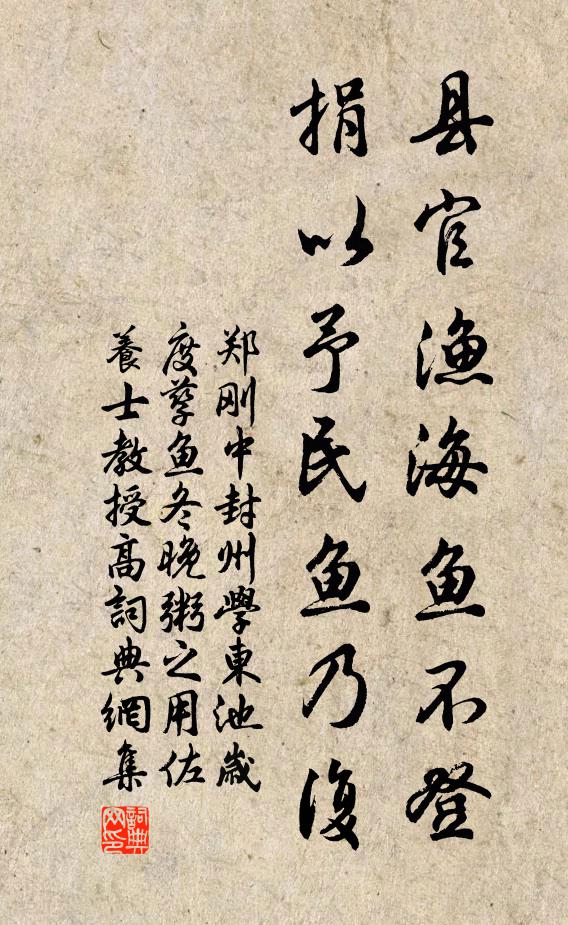 县官渔海鱼不登
捐以予民鱼乃复
郑刚中封州學東池歲
度孳鱼冬晚粥之用佐
養士教授高詞典網集
詞典
网印